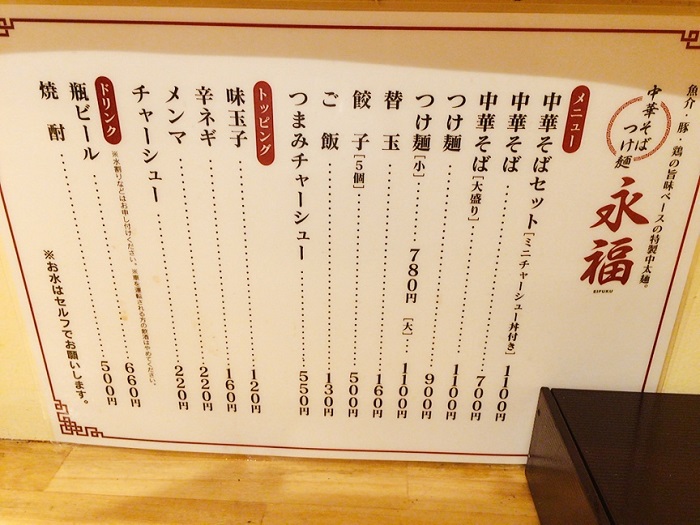 魚介・豚・鶏の旨味ベースの特製中太麺。
中華そば
つけ麺
永福
EIFUKU
メニュー
中華そばセット[ミニチャーシュー丼付き] 1100円
中華そば 700円
中華そば[大盛り] 1100円
つけ麺 900円
つけ麺[小] 780円 [大] 1100円
替玉 160円
餃子[5個] 500円
ご飯 130円
つまみチャーシュー 550円
トッピング
味玉子 120円
辛ネギ 160円
メンマ 220円
チャーシュー 220円
ドリンク
※水割りなどはお申し付けください。※車を運転される方の飲酒はやめてください。
瓶ビール 660円
焼酎 500円
※お水はセルフでお願いします。